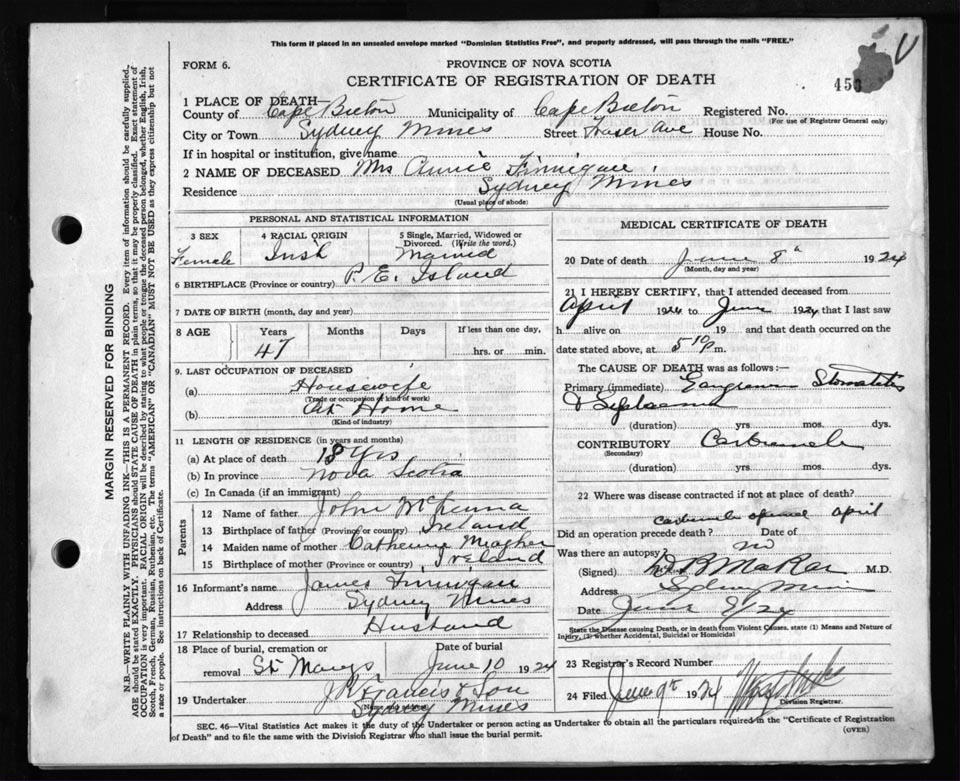 This form if placed in an unsealed envelope marked "Dominion Statistics Free", and properly addressed, will pass through the mails "FREE."
FORM 6.
PROVINCE OF NOVA SCOTIA
CERTIFICATE OF REGISTRATION OF DEATH
450
1 PLACE OF DEATH—
County of Cape Breton Municipality of Cape Breton Registered No.
(For use of Registrar General only)
City or Town Sydney Mines Street Fraser Ave House No.
If in hospital or institution, give name
2 NAME OF DECEASED Mrs Annie Finnigan
Residence Sydney Mines
(Usual place of abode)
PERSONAL AND STATISTICAL INFORMATION
3 SEX Female
4 RACIAL ORIGIN Irish
5 Single, Married, Widowed or Divorced. (Write the word.) Married
6 BIRTHPLACE (Province or country) P. E. Island
7 DATE OF BIRTH (month, day and year)
8 AGE Years 47 Months Days If less than one day, hrs. or min.
9. LAST OCCUPATION OF DECEASED
(a) Housewife
(Trade or occupation of kind of work)
(b) At Home
(Kind of industry)
11 LENGTH OF RESIDENCE (in years and months)
(a) At place of death 18 yrs
(b) In province Nova Scotia
(c) In Canada (if an immigrant)
Parents
12 Name of father John McKenna
13 Birthplace of father (Province or country) Ireland
14 Maiden name of mother Catherine Meagher
15 Birthplace of mother (Province or country) Ireland
16 Informant's name James Finnigan
Address Sydney Mines
17 Relationship to deceased Husband
18 Place of burial, cremation or removal St Marys Date of burial June 10 1924
19 Undertaker J R Francis & Son
Sydney Mines
MEDICAL CERTIFICATE OF DEATH
20 Date of death June 8th 1924
(Month, day and year)
21 I HEREBY CERTIFY, that I attended deceased from
April 1924 to June 1924 that I last saw
h alive on 19 and that death occurred on
date stated above, at 5 10 P m.
The CAUSE OF DEATH was as follows:—
Primary (immediate) Gangrenous Stomatitis
& Septicaemia
(duration) yrs. mos. dys.
CONTRIBUTORY Carbuncle
(Secondary)
(duration) yrs. mos. dys.
22 Where was disease contracted if not at place of death?
carbuncle opened April
Did an operation precede death? Date of
Was there an autopsy? no
(Signed) M.D.
Address Sydney Mines
Date June 9/24
State the Disease causing Death, or in death from Violent Causes, state (1) Means and Nature of Injury, (2) whether Accidental, Suicidal or Homicidal
23 Registrar's Record Number
24 Filed June 9th 1924
Division Registrar.
SEC. 46—Vital Statistics Act makes it the duty of the Undertaker or person acting as Undertaker to obtain all the particulars required in the "Certificate of Registration of Death" and to file the same with the Division Registrar who shall issue the burial permit.
(OVER)
MARGIN RESERVED FOR BINDING
N.B.—WRITE PLAINLY WITH UNFADING INK—THIS IS A PERMANENT RECORD. Every item of information should be carefully supplied.
AGE should be stated EXACTLY. PHYSICIANS should STATE CAUSE OF DEATH in plain terms, so that it may be properly classified. Exact statement of
OCCUPATION is very important. RACIAL ORIGIN will be described by stating to what people or tongue the deceased person belonged, whether English, Irish,
Scotch, French, German, Russian, Ruthenian, etc. The terms "AMERICAN" OR "CANADIAN" MUST NOT BE USED as they express citizenship but not
a race or people. See instructions on back of Certificate.